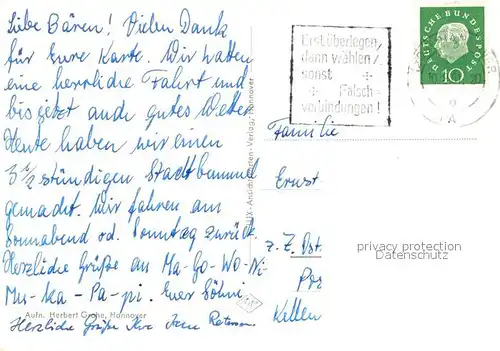 Liebe Bären! Vielen Dank
für Eure Karte. Wir hatten
eine herrliche Fahrt und
bis jetzt auch gutes Wetter.
Heute haben wir einen
3 1/2 stündigen Stadtbummel
gemacht. Wir fahren am
Sonnabend od. Sonntag zurück.
Herzliche Grüße an Ma-Go-Wo-Ni-
Mu-ka-Pa-pi. Euer Söhni
Aufn. Herbert Grohe, Hannover
Herzliche Grüße Ihre
Erst überlegen,
dann wählen,
sonst
Falsch-
verbindungen!
DEUTSCHE BUNDESPOST
10
Familie
Ernst
z. Z. Ost
Por
Kellen
privacy protection
Datenschutz